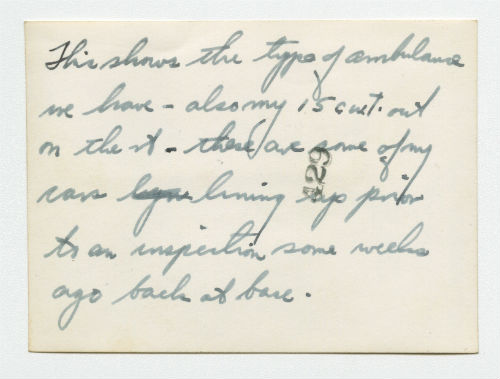 This shows the type of ambulance
we have - also my 15 cwt. out
on the rt - these are some of my
cars lining up prior
429
to an inspection some weeks
ago back at base.